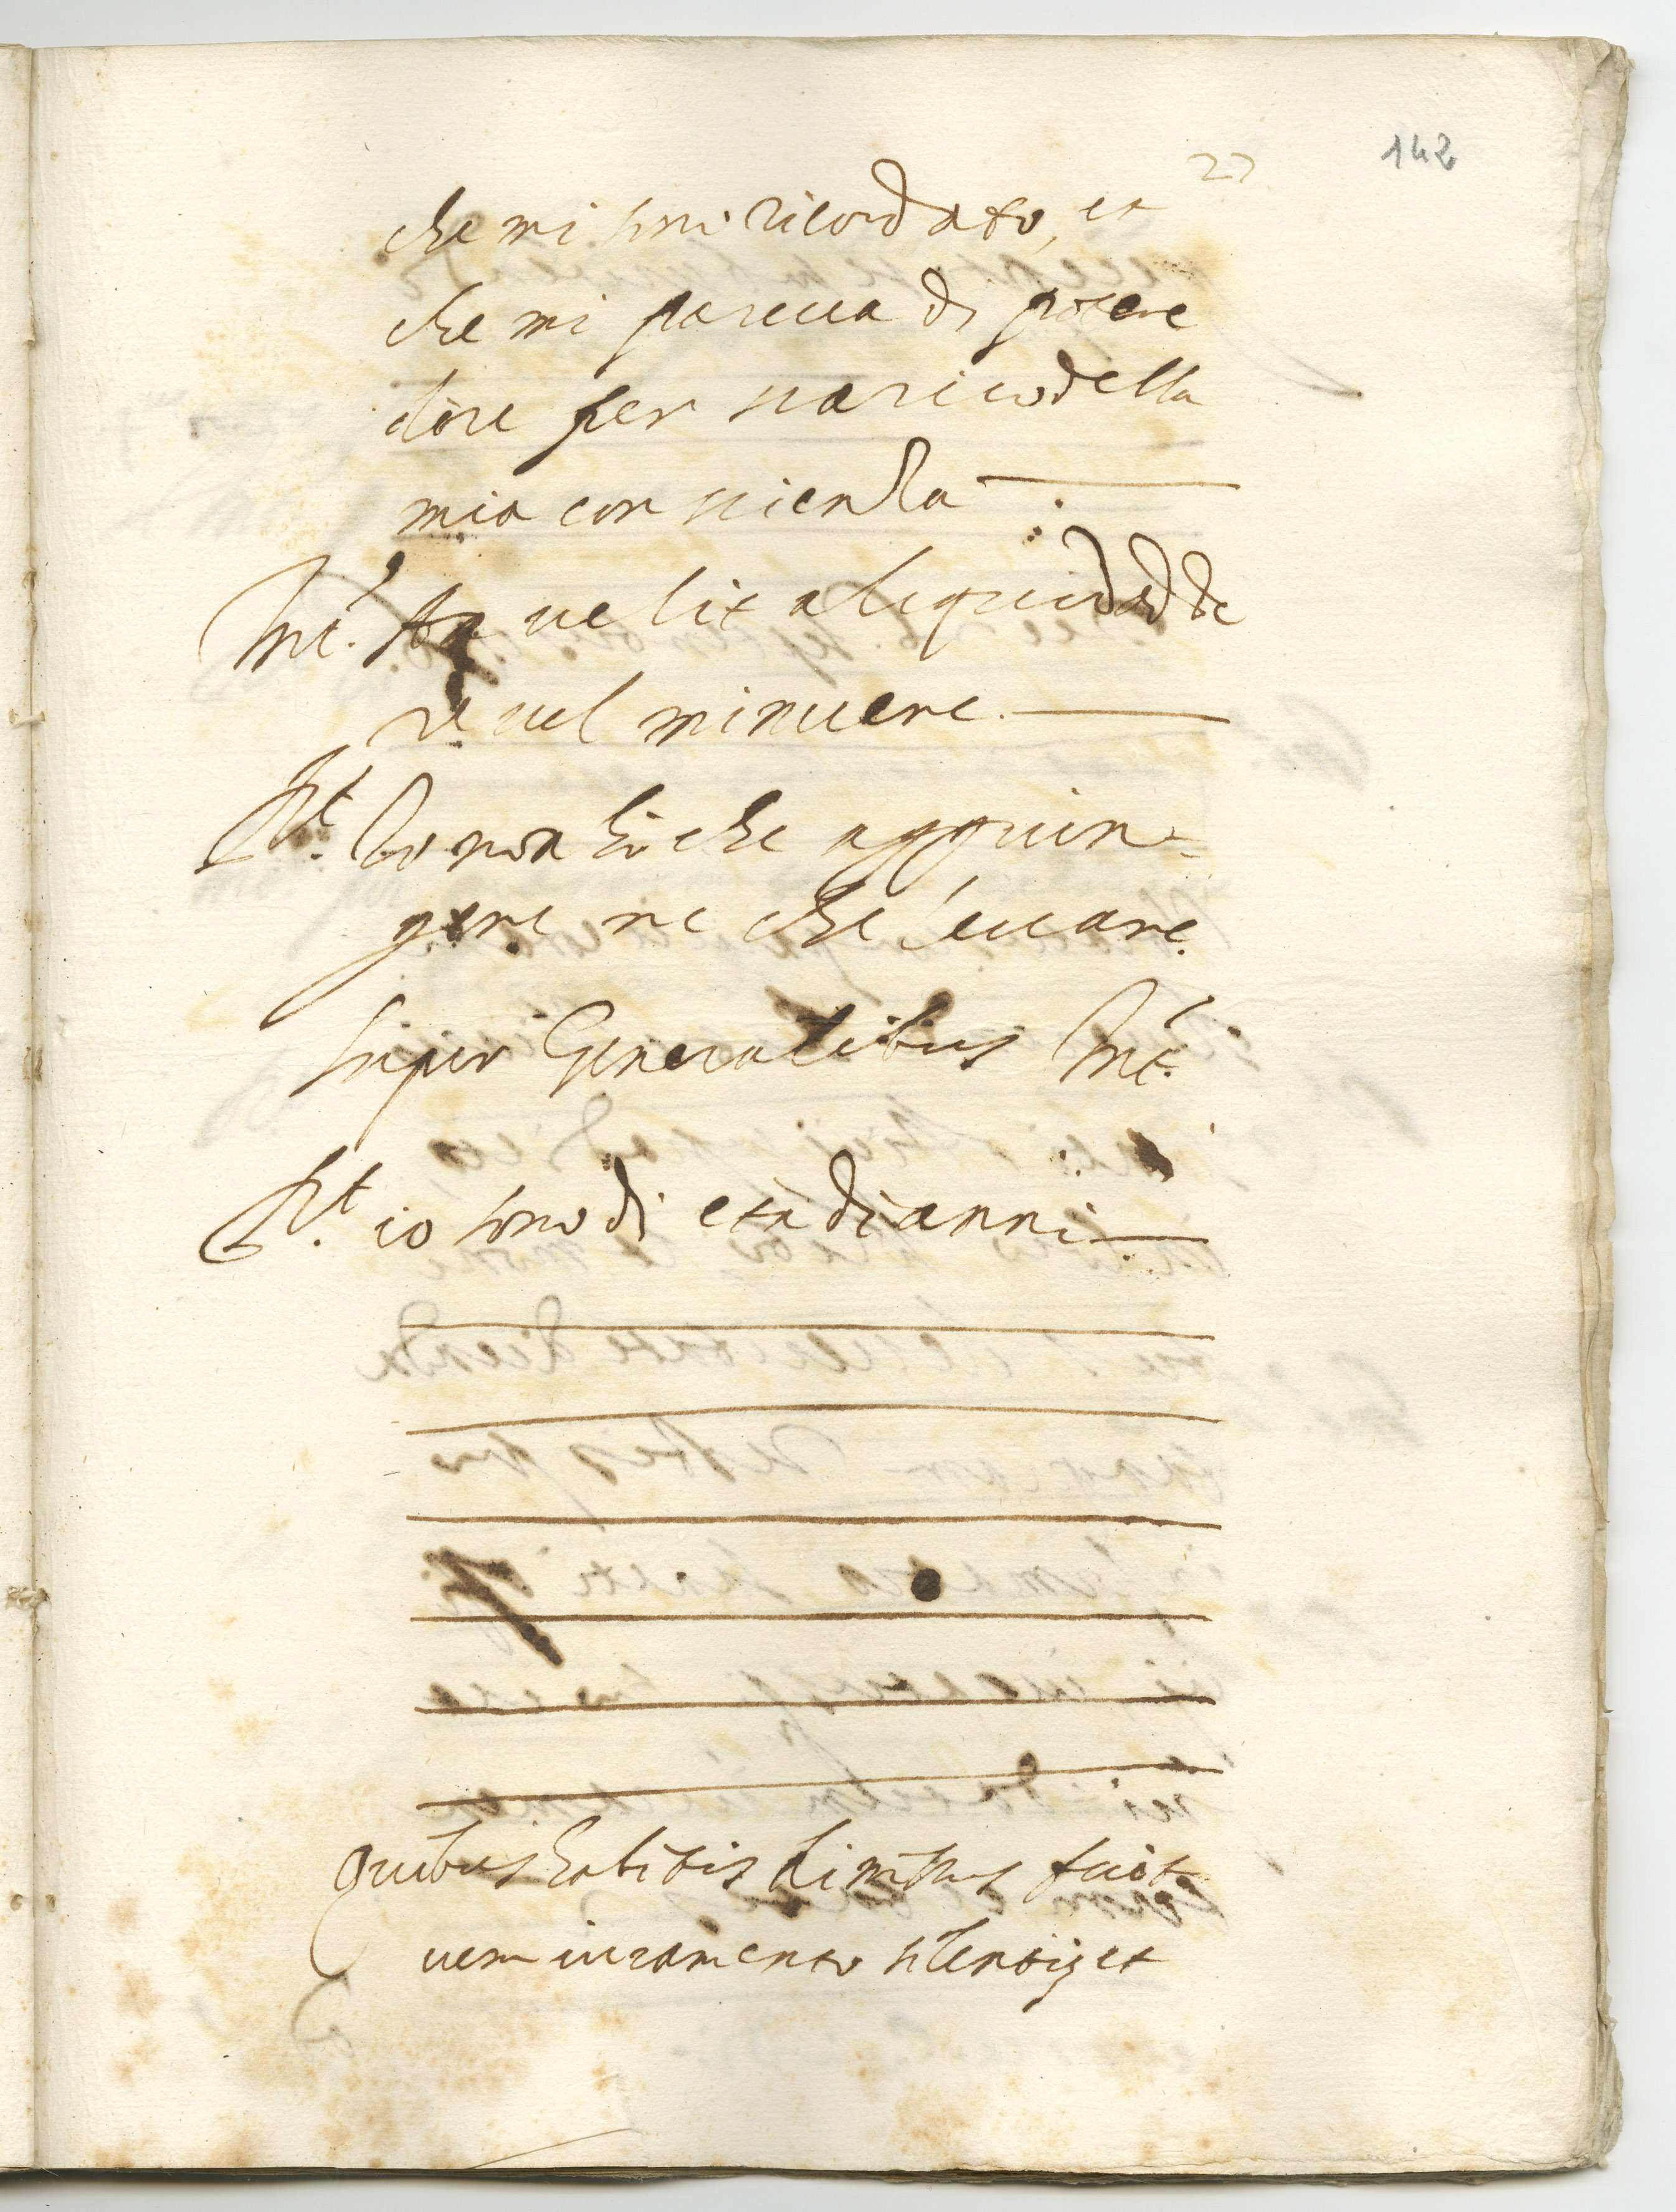 27
142
che mi son ricordato, et
che mi pareua di potere
dire per scarico della
mia conscienza
Int.s An uelit aliquid adde
re uel minuere.
Rt. Io non hò che aggiun=
gere ne che leuare.
super Generalibus Int.s
Rt. io sono di età di anni
Quibus habitis dimissus fuit
cum iuramento silentij et